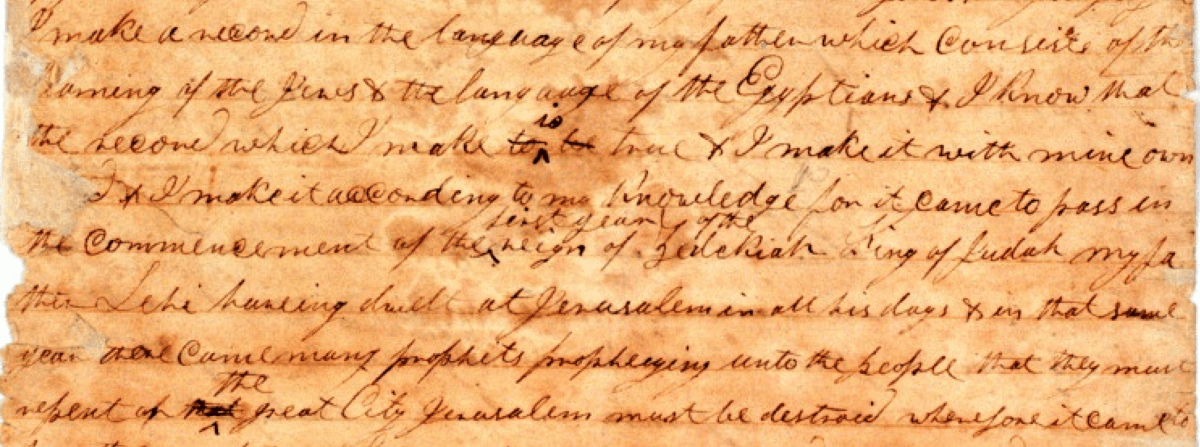 I make a record in the language of my father which consists of th
arning of the Jews & the language of the Egyptians & I know that
the record which I make to be is true & I make it with mine own
d & I make it according to my knowledge for it came to pass in
the commencement of the first year of the reign of zedekiah King of Judah my fa
ther Lehi haveing dwelt at Jerusalem in all his days & in that same
year there came many prophets prophesying unto the people that they must
repent or that the great City Jerusalem must be destroid wherefore it came to